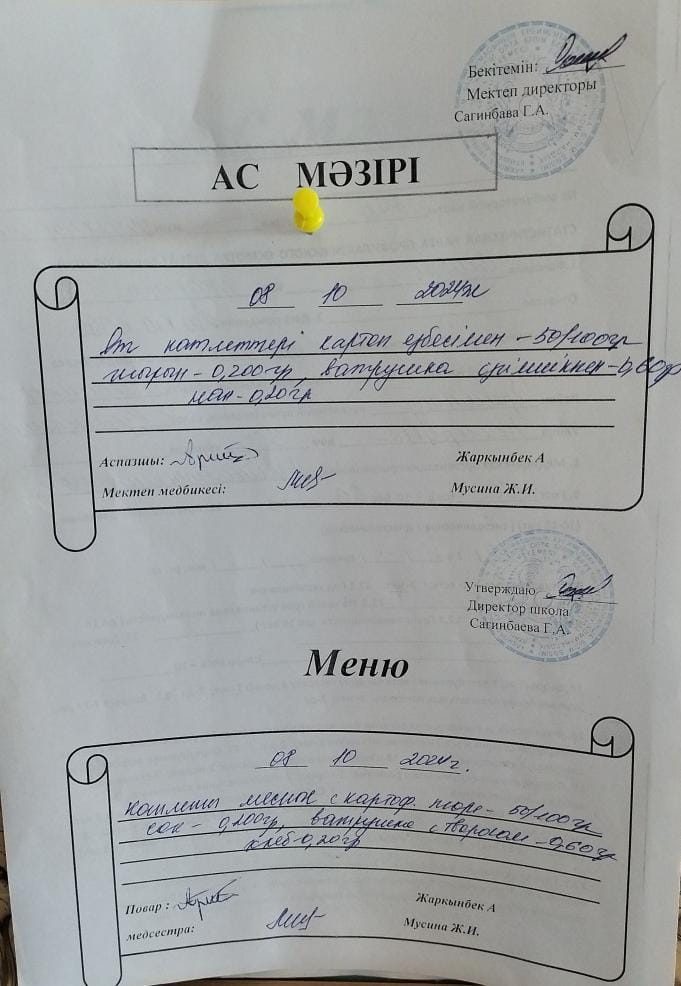 Бекітемін:
Мектеп директоры
Сагинбава Г.А.
АС МӘЗІРІ
08 10 2024ж
Ет катлеттері картоп езбесімен - 50/100гр
шырын - 0,200гр, ватрушка сүзімшікпен - 0,60гр
нан - 0,20гр
Аспазшы: Жаркынбек А
Мектеп медбикесі: Мусина Ж.И.
Утверждаю
Директор школа
Сагинбаева Г.А.
Меню
08 10 2024г.
котлеты мясные с картоф. пюре - 50/100гр
сок - 0,200гр, ватрушка с творогом - 0,60гр
хлеб - 0,20гр
Повар : Жаркынбек А
медсестра: Мусина Ж.И.